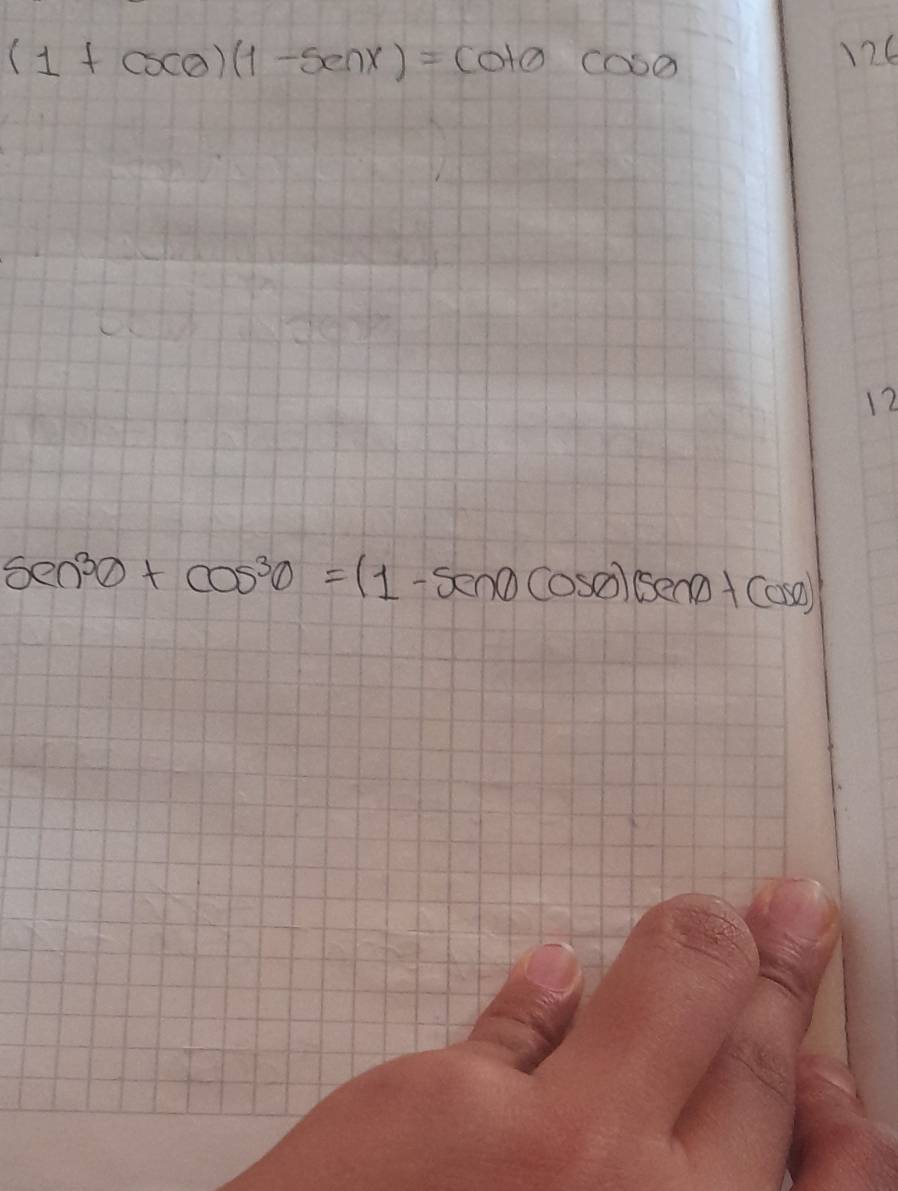 (1 + cscθ)(1 - senx) = cotθ cosθ
126
12
sen³θ + cos³θ = (1 - senθ cosθ)(senθ + cosθ)